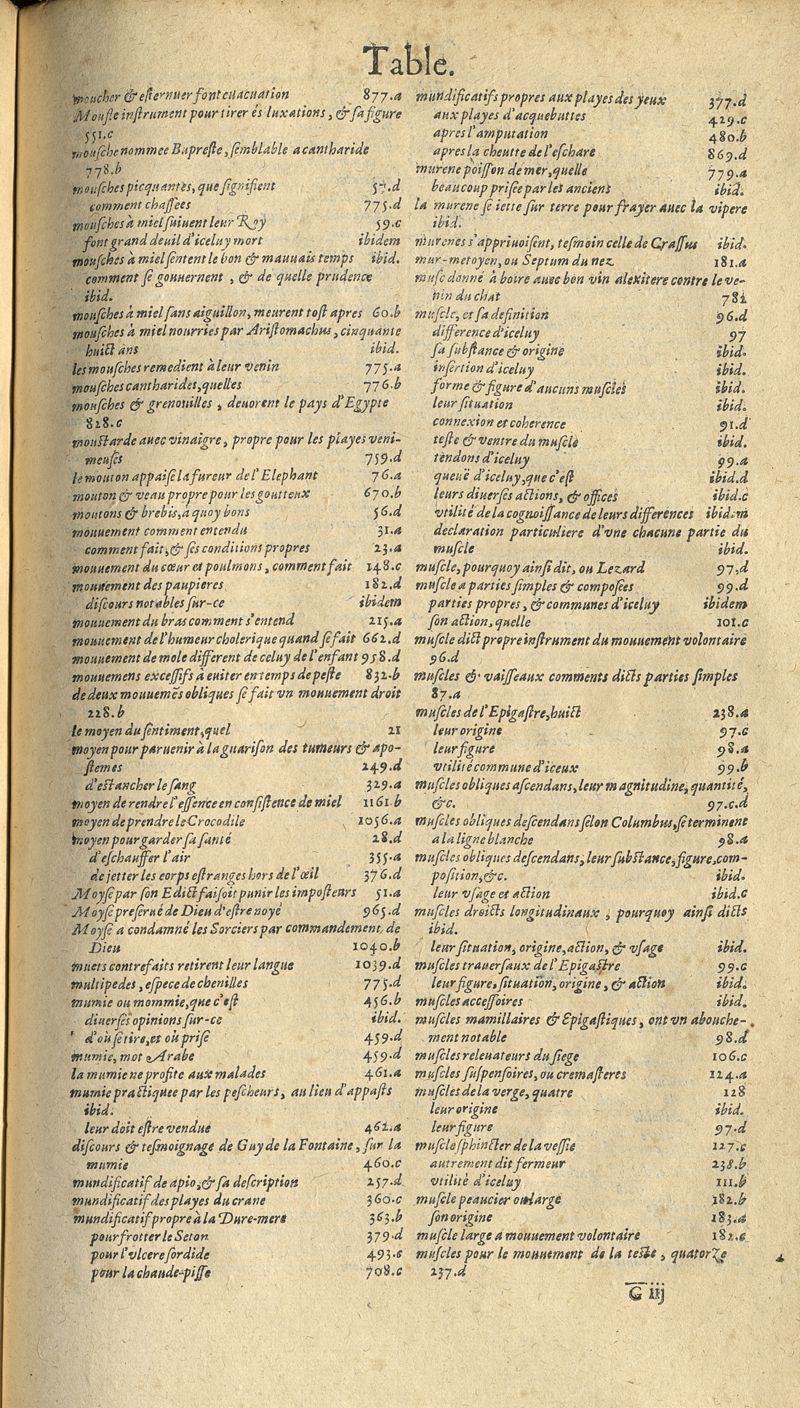 Table.
moucher & eſternuer font euacuation 877.a
Moufle inſtrument pour tirer és luxations, & ſa figure
551.c
mouſche nommee Bupreſte, ſemblable a cantharide
778.b
mouſches picquantes, que ſignifient 57.d
comment chaſſees 775.d
mouſches à miel ſuiuent leur Roy 59.c
font grand deuil d'iceluy mort ibidem
mouſches à miel ſentent le bon & mauuais temps ibid.
comment ſe gouuernent, & de quelle prudence
ibid.
mouſches à miel ſans aiguillon, meurent toſt apres 60.b
mouſches à miel nourries par Ariſtomachus, cinquante
huict ans ibid.
les mouſches remedient à leur venin 775.a
mouſches cantharides, quelles 776.b
mouſches & grenouilles, deuorent le pays d'Egypte
828.c
mouſtarde auec vinaigre, propre pour les playes veni-
meuſes 759.d
le mouton appaiſe la fureur de l'Elephant 76.a
mouton & veau propre pour les goutteux 670.b
moutons & brebis, à quoy bons 56.d
mouuement comment entendu 31.a
comment fait, & ſes conditions propres 23.a
mouuement du cœur et poulmons, comment fait 148.c
mouuement des paupieres 182.d
diſcours notables ſur-ce ibidem
mouuement du bras comment s'entend 215.a
mouuement de l'humeur cholerique quand ſe fait 662.d
mouuement de mole different de celuy de l'enfant 958.d
mouuemens exceſſifs à euiter en temps de peſte 832.b
de deux mouuemēs obliques ſe fait vn mouuement droit
228.b
le moyen du ſentiment, quel 21
moyen pour paruenir à la guariſon des tumeurs & apo-
ſtemes 249.d
d'eſtancher le ſang 329.a
moyen de rendre l'eſſence en conſiſtence de miel 1161.b
moyen de prendre le Crocodile 1056.a
moyen pour garder ſa ſanté 28.d
d'eſchauffer l'air 355.a
de jetter les corps eſtranges hors de l'œil 376.d
Moyſe par ſon Edict faiſoit punir les impoſteurs 51.a
Moyſe preſerué de Dieu d'eſtre noyé 965.d
Moyſe a condamné les Sorciers par commandement de
Dieu 1040.b
muets contrefaits retirent leur langue 1039.d
multipedes, eſpece de chenilles 775.d
mumie ou mommie, que c'eſt 456.b
diuerſes opinions ſur-ce ibid.
d'où ſe tire, et où priſe 459.d
mumie, mot Arabe 459.d
la mumie ne profite aux malades 461.a
mumie practiquee par les peſcheurs, au lieu d'appaſts
ibid.
leur doit eſtre vendue 462.a
diſcours & teſmoignage de Guy de la Fontaine, ſur la
mumie 460.c
mundificatif de apio, & ſa deſcription 257.d
mundificatif des playes du crane 360.c
mundificatif propre à la Dure-mere 363.b
pour frotter le Seton 379.d
pour l'vlcere ſordide 493.c
pour la chaude-piſſe 708.c
mundificatifs propres aux playes des yeux 377.d
aux playes d'acquebuttes 429.c
apres l'amputation 480.b
apres la cheutte de l'eſchare 869.d
murene poiſſon de mer, quelle 779.a
beaucoup priſee par les anciens ibid.
la murene ſe iette ſur terre pour frayer auec la vipere
ibid.
murenes s'appriuoiſent, teſmoin celle de Craſſus ibid.
mur-metoyen, ou Septum du nez 181.a
muſc donné à boire auec bon vin alexitere contre le ve-
nin du chat 781
muſcle, et ſa definition 96.d
difference d'iceluy 97
ſa ſubſtance & origine ibid.
inſertion d'iceluy ibid.
forme & figure d'aucuns muſcles ibid.
leur ſituation ibid.
connexion et coherence 91.d
teſte & ventre du muſcle ibid.
tendons d'iceluy 99.a
queuë d'iceluy, que c'eſt ibid.d
leurs diuerſes actions, & offices ibid.c
vtilité de la cognoiſſance de leurs differences ibidem
declaration particuliere d'vne chacune partie du
muſcle ibid.
muſcle, pourquoy ainſi dit, ou Lezard 97.d
muſcle a parties ſimples & compoſees 99.d
parties propres, & communes d'iceluy ibidem
ſon action, quelle 101.c
muſcle dict propre inſtrument du mouuement volontaire
96.d
muſcles & vaiſſeaux comments dicts parties ſimples
87.a
muſcles de l'Epigaſtre, huict 238.a
leur origine 97.c
leur figure 98.a
vtilité commune d'iceux 99.b
muſcles obliques aſcendans, leur magnitudine, quantité,
&c. 97.c.d
muſcles obliques deſcendans ſelon Columbus, ſe terminent
a la ligne blanche 98.a
muſcles obliques deſcendans, leur ſubſtance, figure, com-
poſition, &c. ibid.
leur vſage et action ibid.c
muſcles droicts longitudinaux, pourquoy ainſi dicts
ibid.
leur ſituation, origine, action, & vſage ibid.
muſcles trauerſaux de l'Epigaſtre 99.c
leur figure, ſituation, origine, & action ibid.
muſcles acceſſoires ibid.
muſcles mamillaires & Epigaſtiques, ont vn abouche-
ment notable 98.d
muſcles releuateurs du ſiege 106.c
muſcles ſuſpenſoires, ou cremaſteres 124.a
muſcles de la verge, quatre 128
leur origine ibid.
leur figure 97.d
muſcle ſphincter de la veſſie 127.c
autrement dit fermeur 238.b
vtilité d'iceluy 111.b
muſcle peaucier ou large 182.b
ſon origine 183.a
muſcle large a mouuement volontaire 182.c
muſcles pour le mouuement de la teſte, quatorze
237.d
G iij